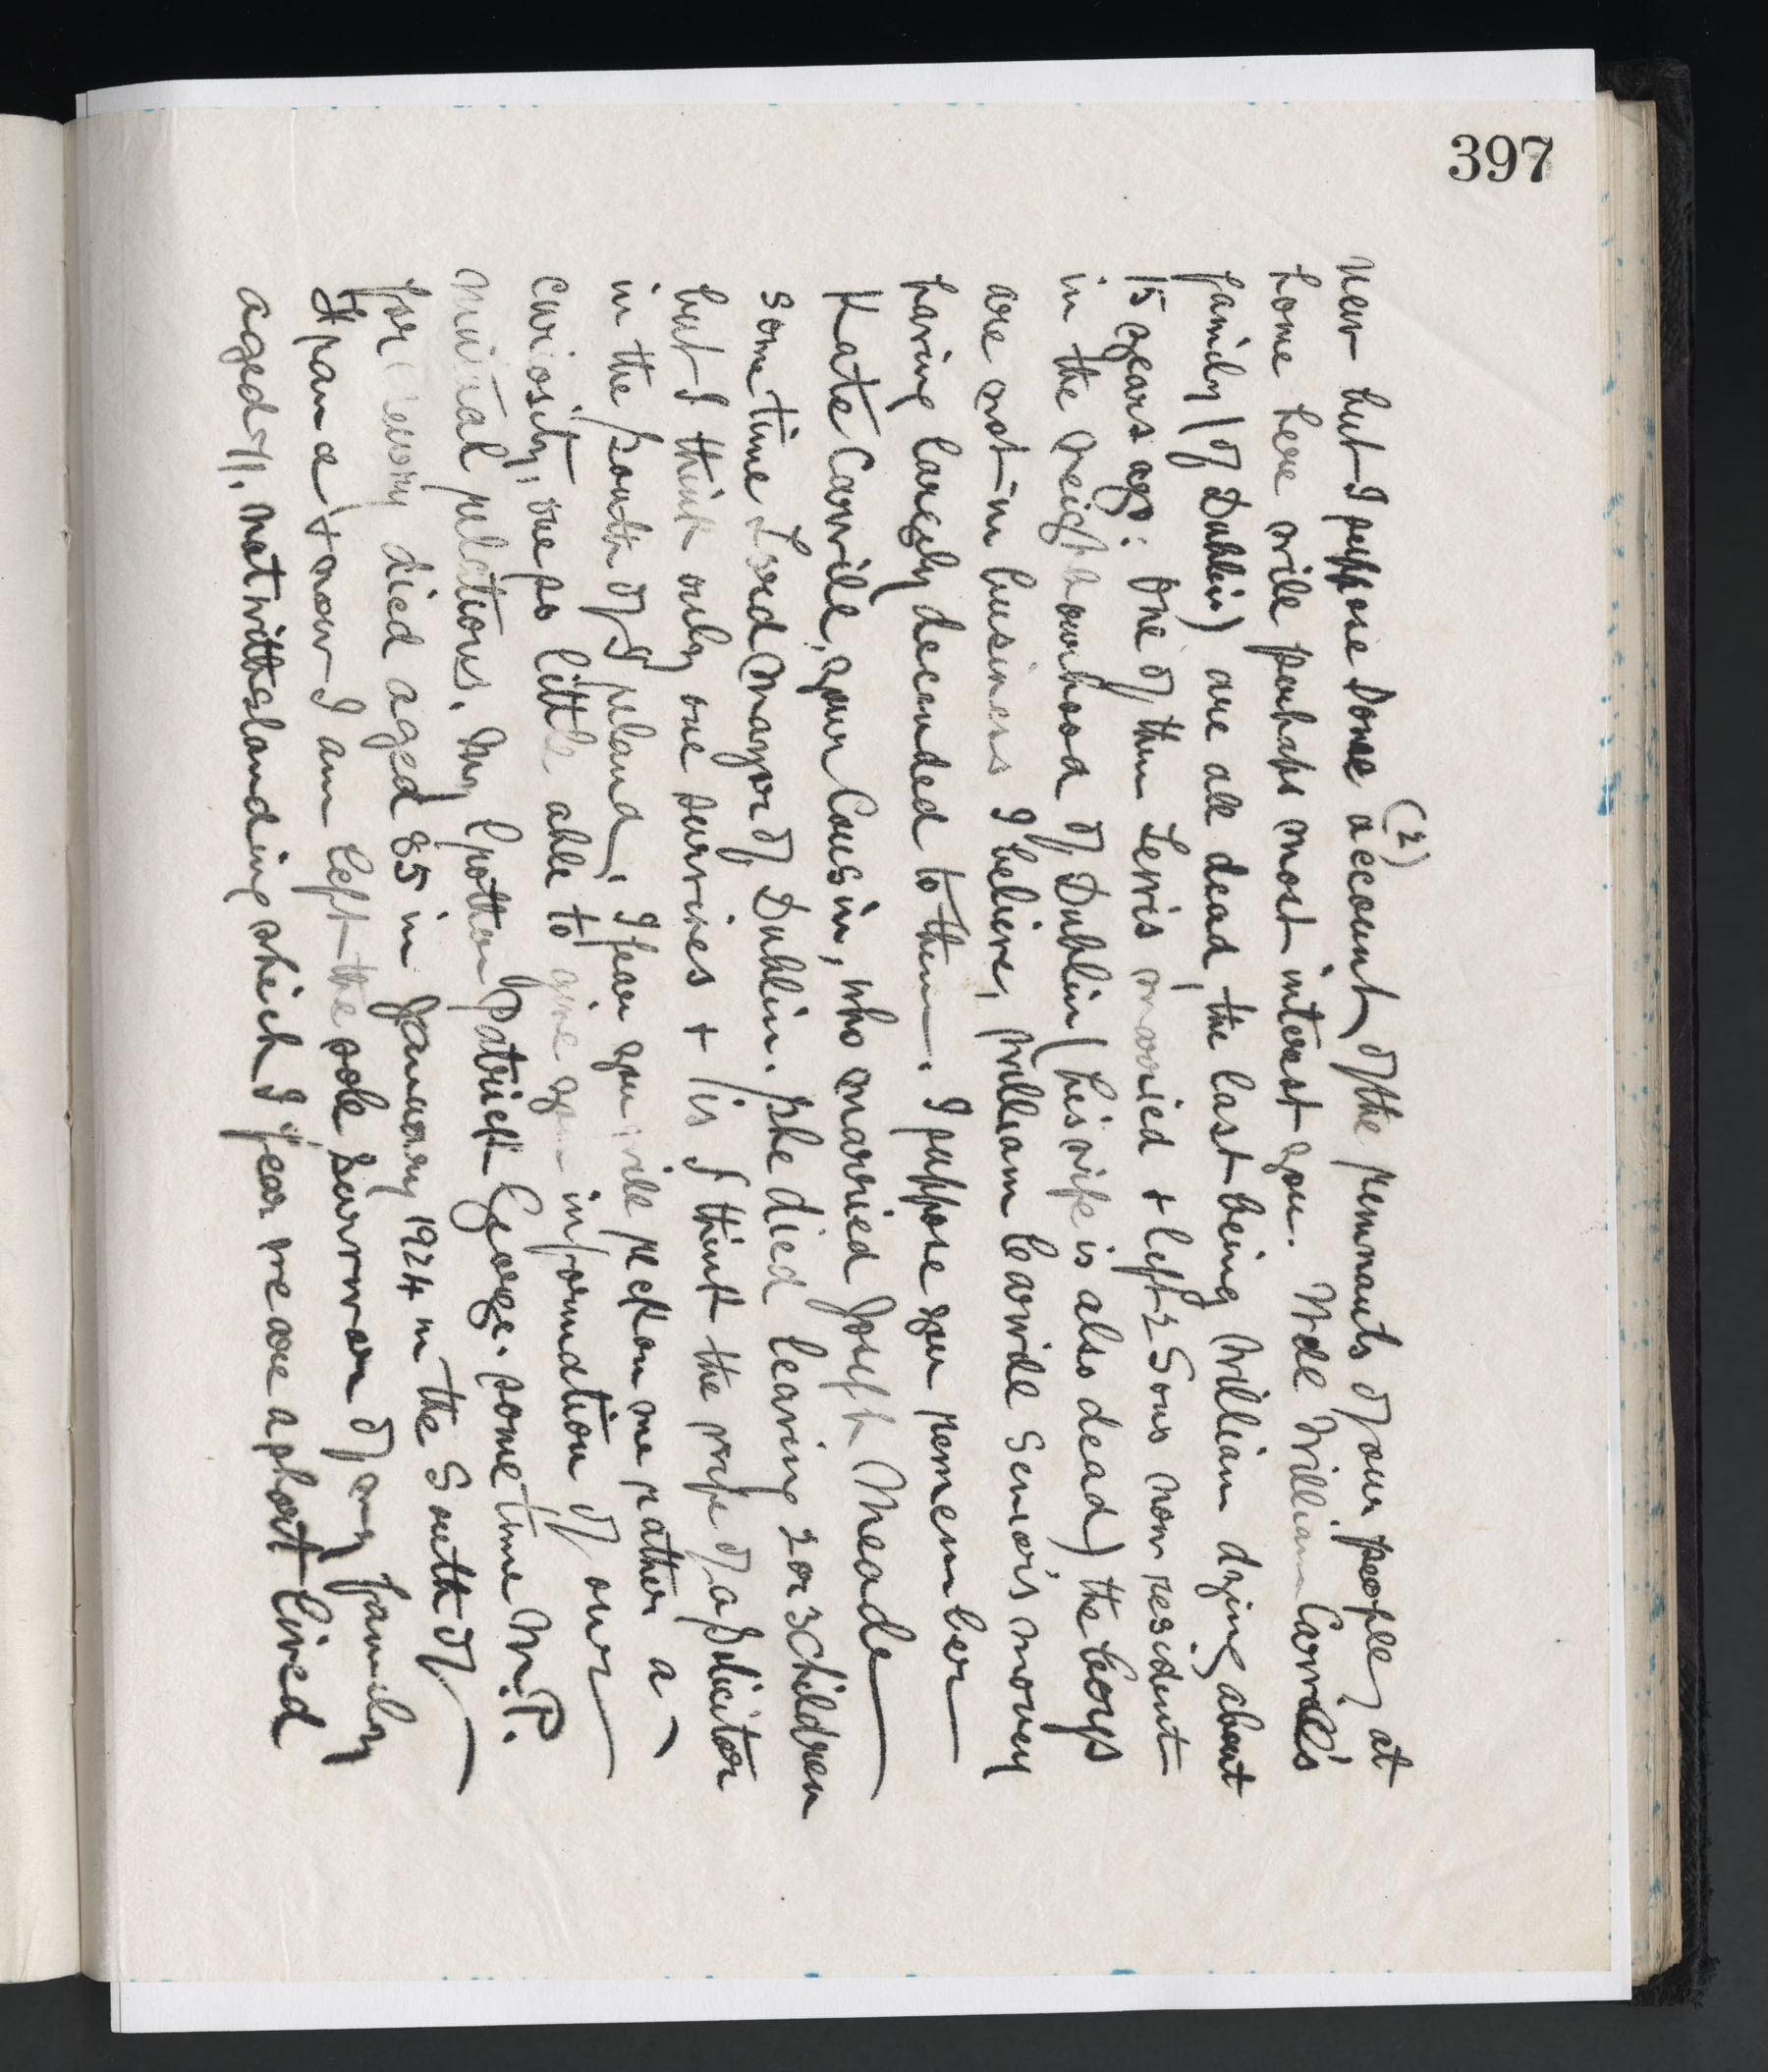 397
(2)
near but I suppose some account of the remnants of our people at
home here will perhaps most interest you. Well William Carvill's
family (of Dublin) are all dead, the last being William dying about
15 years ago. One of them Lewis married & left 2 Sons now resident
in the neighbourhood of Dublin (his wife is also dead) the boys
are not in business I believe, William Carvill Senior's money
having largely decended to them. I suppose you remember
Kate Carvill, your Cousin, who married Joseph Meade
some time Lord Mayor of Dublin. She died leaving 2 or 3 children
but I think only one survives & is I think the wife of a Solicitor
in the South of Ireland. I fear you will reckon me rather a
curiosity, one so little able to give you information of our
mutual relations. My brother Patrick George. some time M.P.
for Newry died aged 85 in January 1924 in the South of
France & now I am left the sole survivor of my family
aged 71, notwithstanding which I fear we are a short lived